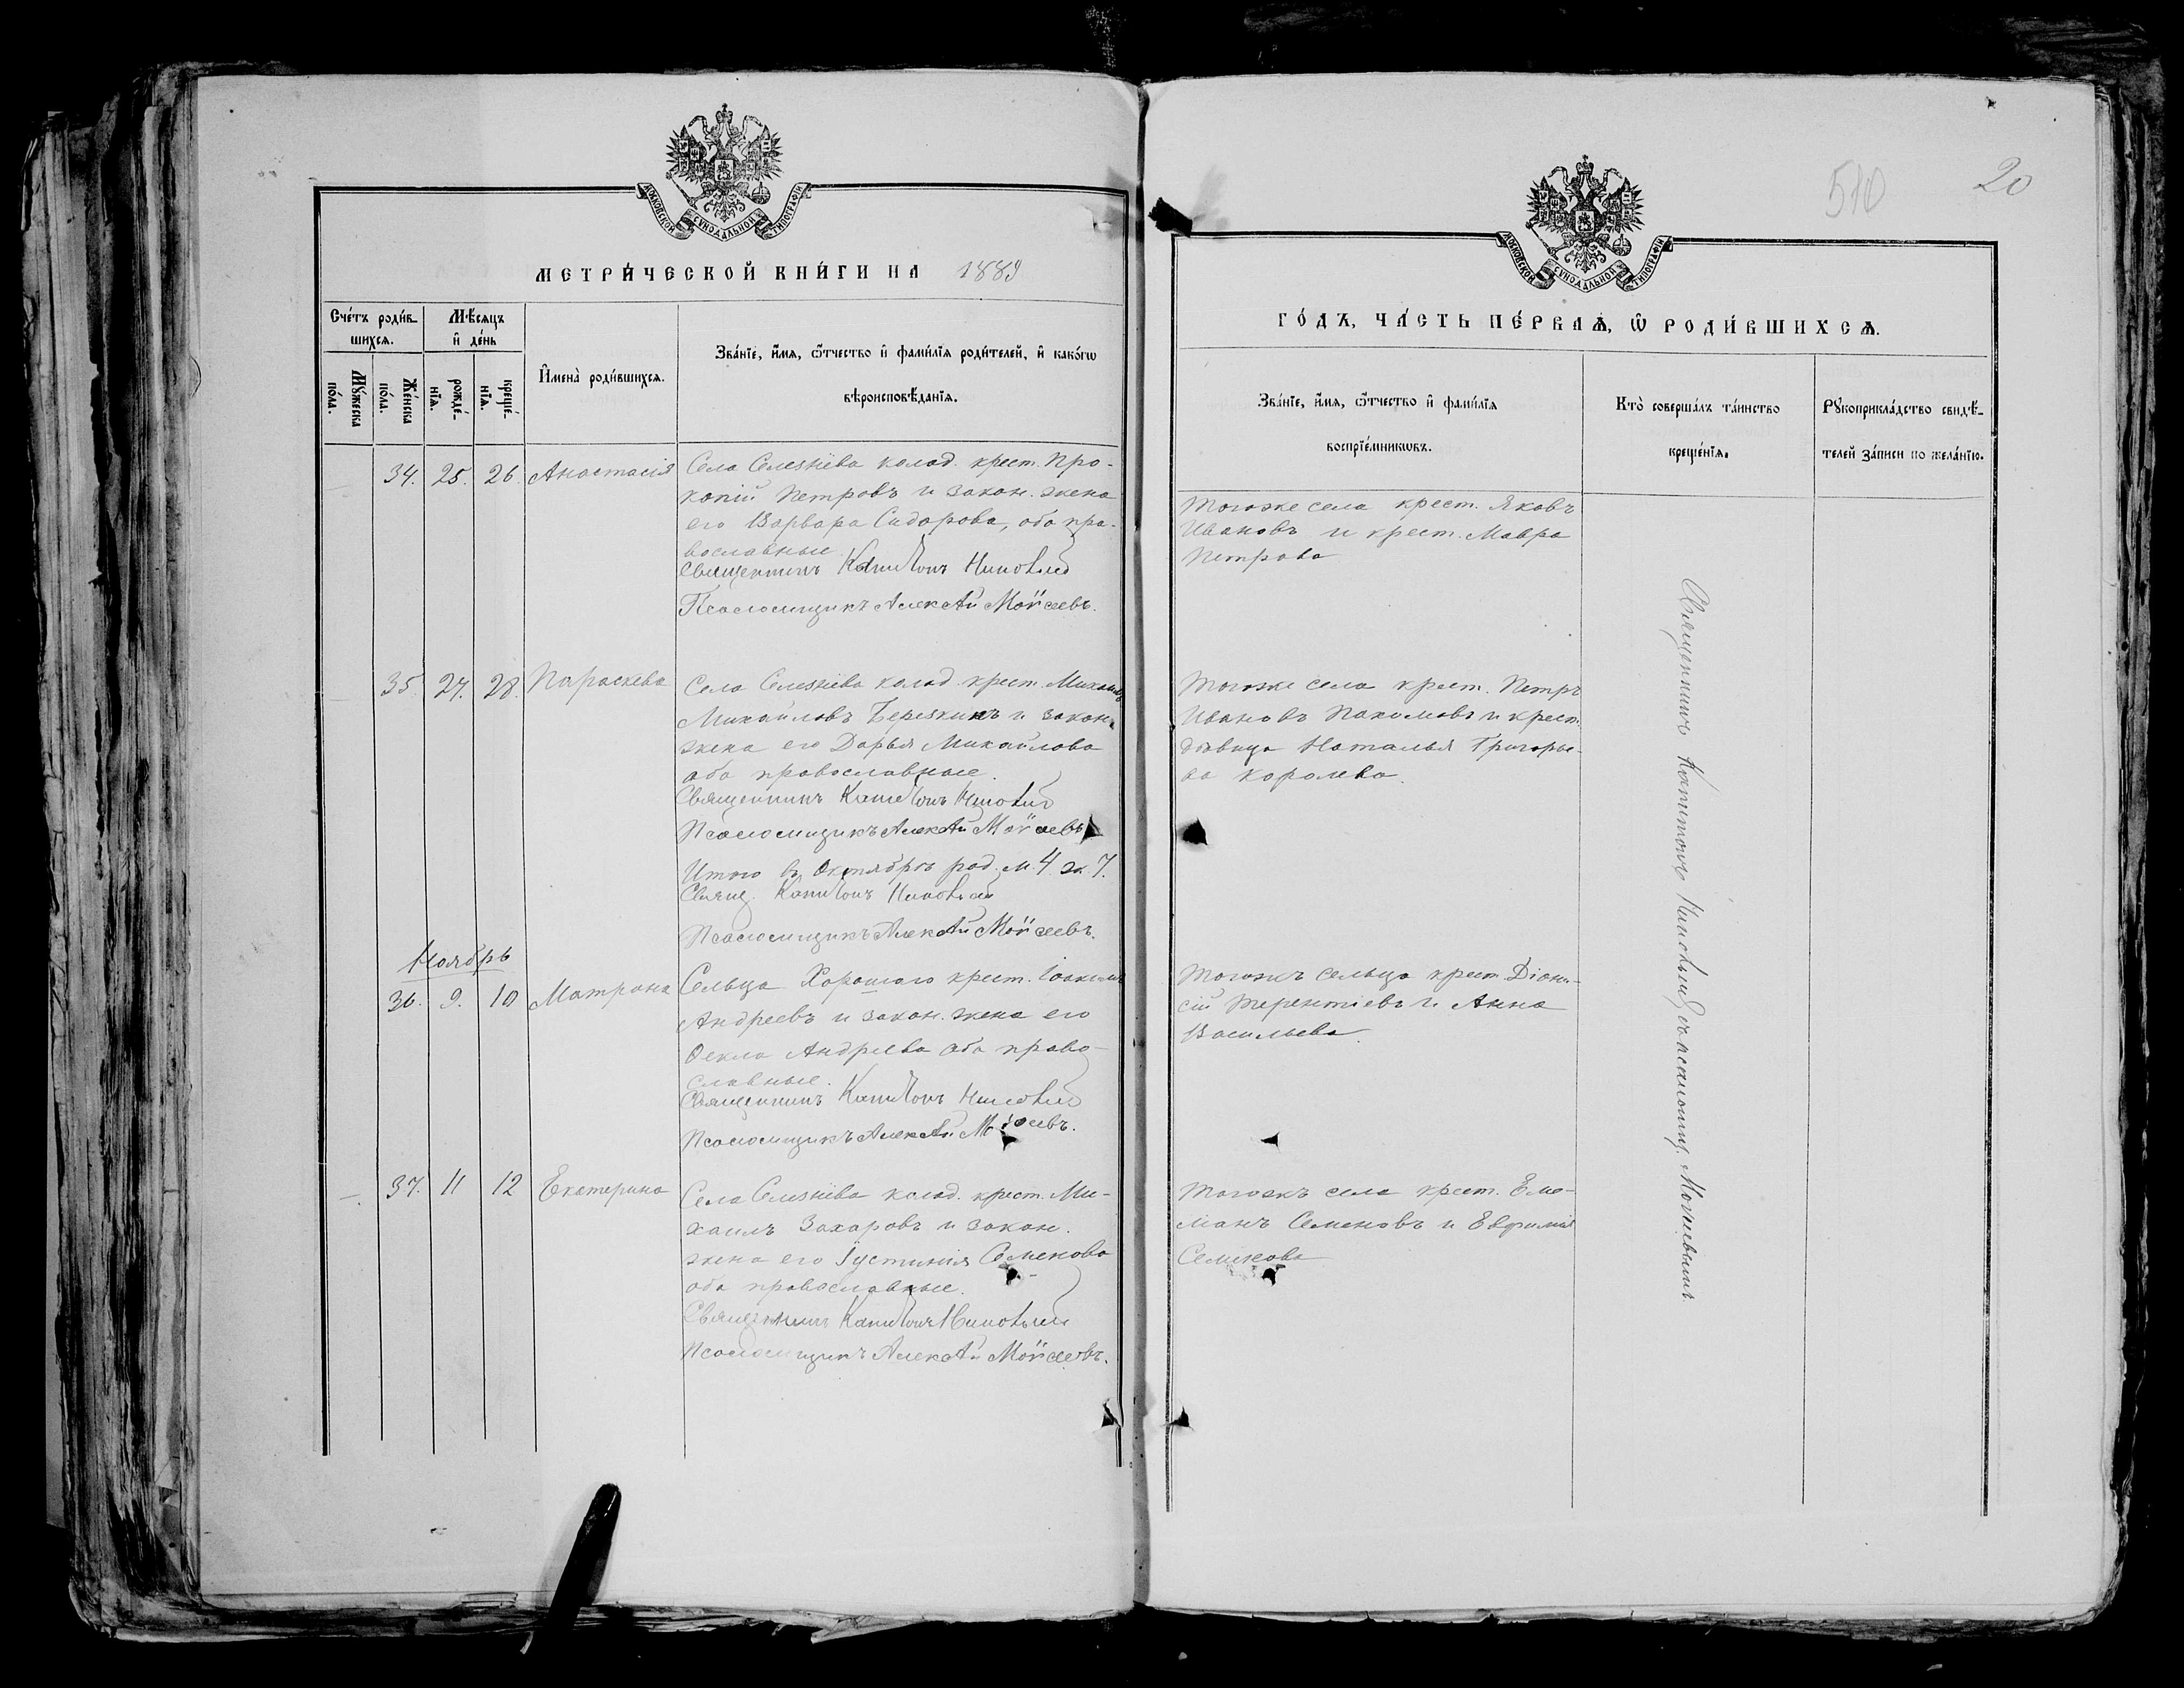 МОСКОВСКОЙ СѴНОДАЛЬНОЙ ТИПОГРАФІИ
МЕТРИ́ЧЕСКОЙ КНИ́ГИ НА 1889
Сче́тъ роди́в-
шихсѧ.
Мѣ́сѧцъ
и҆ де́нь
Мꙋ́жеска
по́ла.
Же́нска
по́ла.
рожде́-
нїѧ.
креще́-
нїѧ.
И҆мена̀ роди́вшихсѧ.
Зва́нїе, и҆́мѧ, ѻ҆́тчество и҆ фами́лїѧ роди́телей, и҆ како́гѡ
вѣроисповѣ́данїѧ.
34. 25. 26 Анастасія
Села Селезнева колод. крест. Про-
копій Петровъ и закон. жена
его Варвара Сидорова, оба пра-
вославные.
Священникъ Капитонъ
Псаломщикъ Алексѣй Мойсеевъ.
35. 27. 28. Параскева
Села Селезнева колод. крест. Михаилъ
Михайловъ Березкинъ и закон.
жена его Дарья Михайлова
оба православные.
Священникъ Капитонъ
Псаломщикъ Алексѣй Мойсеевъ
Итого въ Октябрѣ род. м. 4 ж. 7.
Свящ. Капитонъ
Псаломщикъ Алексѣй Мойсеевъ.
Ноябрь
36. 9. 10 Матрона
Сельца Хорошаго крест. Іоакимъ
Андреевъ и закон. жена его
Ѳекла Андреева оба право-
славные.
Священникъ Капитонъ
Псаломщикъ Алексѣй
37. 11 12 Екатерина
Села Селезнева колод. крест. Ми-
хаилъ Захаровъ и закон.
жена его Іустинія Семенова
оба православные.
Священникъ Капитонъ
Псаломщикъ Алексѣй Мойсеевъ.
510 20
МОСКОВСКОЙ СѴНОДАЛЬНОЙ ТИПОГРАФІИ
ГО́ДЪ, ЧА́СТЬ ПЕ́РВАѦ, Ѡ҆ РОДИ́ВШИХСѦ.
Зва́нїе, и҆́мѧ, ѻ҆́тчество и҆ фами́лїѧ
воспрїе́мникѡвъ.
Кто̀ соверша́лъ та́инство
креще́нїѧ.
Рꙋкоприкла́дство свидѣ́-
телей за́писи по жела́нїю.
Тогоже села крест. Яковъ
Ивановъ и крест. Мавра
Петрова
Тогоже села крест. Петръ
Ивановъ Пахомовъ и крест.
дѣвица Наталья Григорье-
ва Королева.
Тогожъ сельца крест. Діони-
сій Терентіевъ и Анна
Васильева.
Тогожъ села крест. Еме-
ліанъ Семеновъ и Евфимія
Семенова
Священникъ Капитонъ съ псаломщ. Мойсеевымъ.